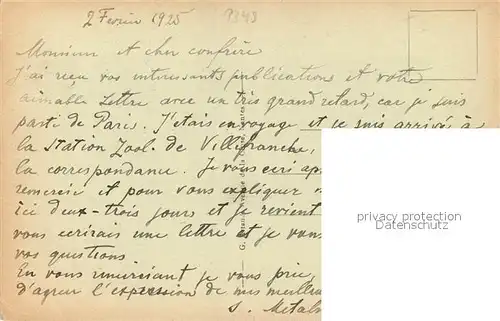 2 Fevrier 1925 9343
Monsieur et cher confrère
J'ai reçu vos interessants publications et votre
aimable lettre avec un très grand retard, car je suis
parti de Paris. J'etais en voyage et je suis arrivé à
la station Zool. de Villefranche,
la correspondance. Je vous ecri
remercie et pour vous expliquer
ici deux-trois jours et je revient
vous ecrirais une lettre et je
vos questions
En vous remerciant je vous prie,
d'agreer l'expression de mes meilleu
S. Metaln
privacy protection
ansichtskartenversand.com